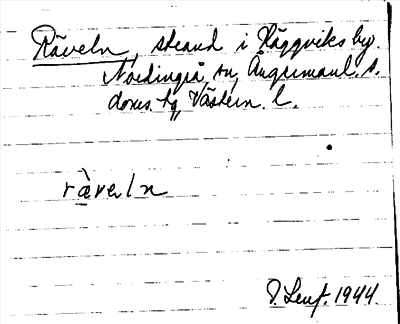 Räveln, strand i Häggviks by.
Nordingrå sn, Ångermanl. s.
doms. tg, Västern. l.
ràveln
1944